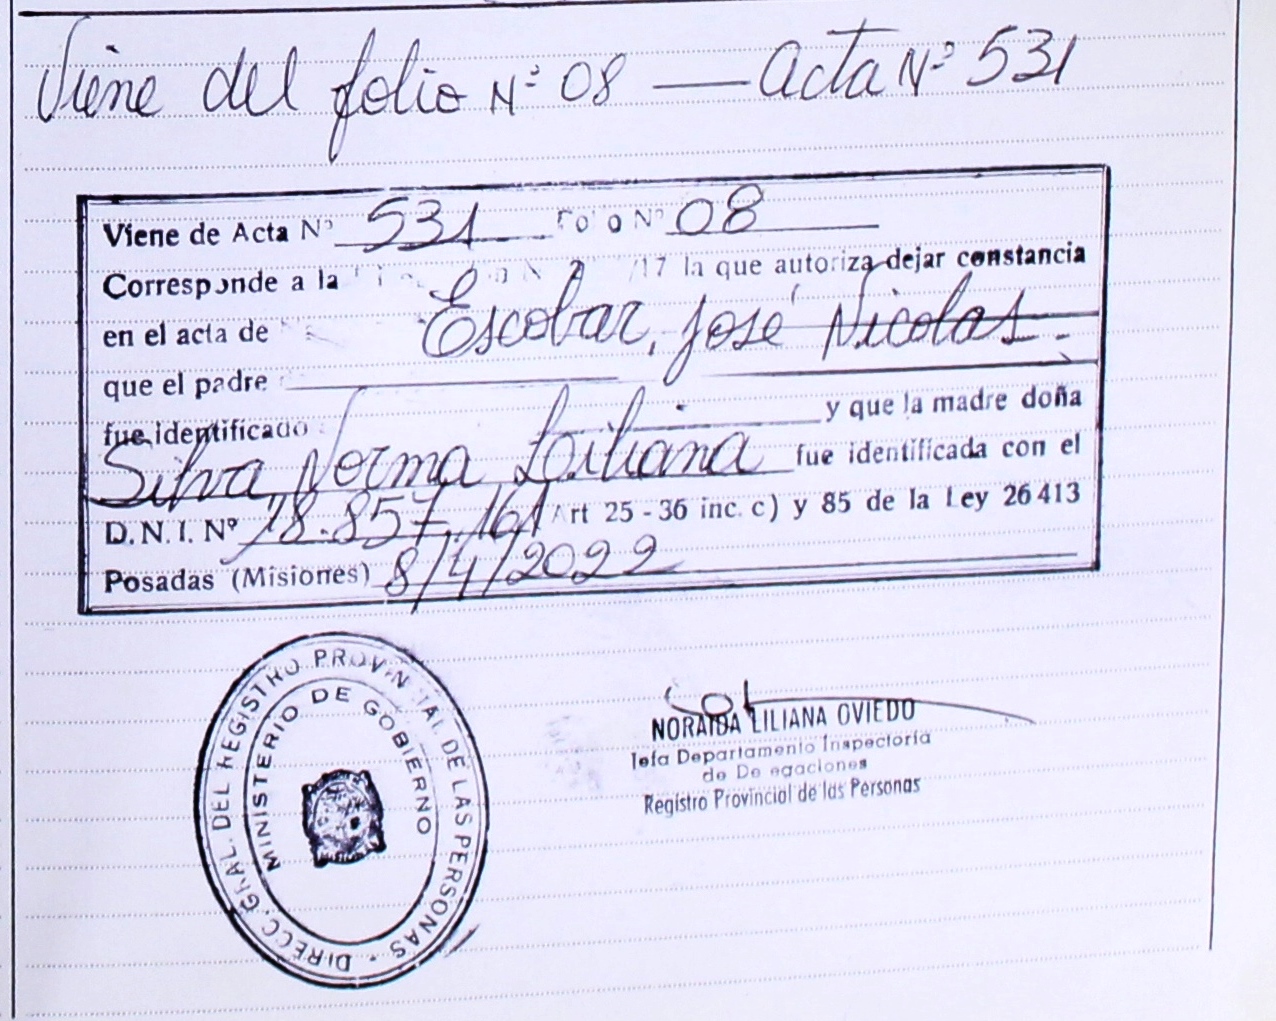 Viene del folio Nº 08 — Acta Nº 531
Viene de Acta Nº 531 Folio Nº 08
Corresponde a la /17 la que autoriza dejar constancia
en el acta de Escobar, José Nicolas.
que el padre
fue identificado y que la madre doña
Silva, Norma Liliana fue identificada con el
D.N.I. Nº 18.857.161 Art 25-36 inc. c) y 85 de la Ley 26413
Posadas (Misiones) 8/4/2022
DIRECC. GRAL. DEL REGISTRO PROVINCIAL DE LAS PERSONAS
MINISTERIO DE GOBIERNO
NORAIDA LILIANA OVIEDO
Jefa Departamento Inspectoria
de Delegaciones
Registro Provincial de las Personas